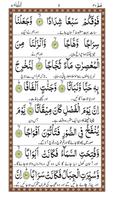 فَوْقَكُمْ سَبْعًا شِدَادًا ۝ وَّجَعَلْنَا
سِرَاجًا وَّهَّاجًا ۝ وَّاَنْزَلْنَا مِنَ
الْمُعْصِرٰتِ مَآءً ثَجَّاجًا ۝ لِّنُخْرِجَ
بِهٖ حَبًّا وَّنَبَاتًا ۝ وَّجَنّٰتٍ اَلْفَافًا ۝
اِنَّ يَوْمَ الْفَصْلِ كَانَ مِيْقَاتًا ۝ يَّوْمَ
يُنْفَخُ فِي الصُّوْرِ فَتَاْتُوْنَ اَفْوَاجًا ۝
وَّفُتِحَتِ السَّمَآءُ فَكَانَتْ اَبْوَابًا ۝
وَّسُيِّرَتِ الْجِبَالُ فَكَانَتْ سَرَابًا ۝